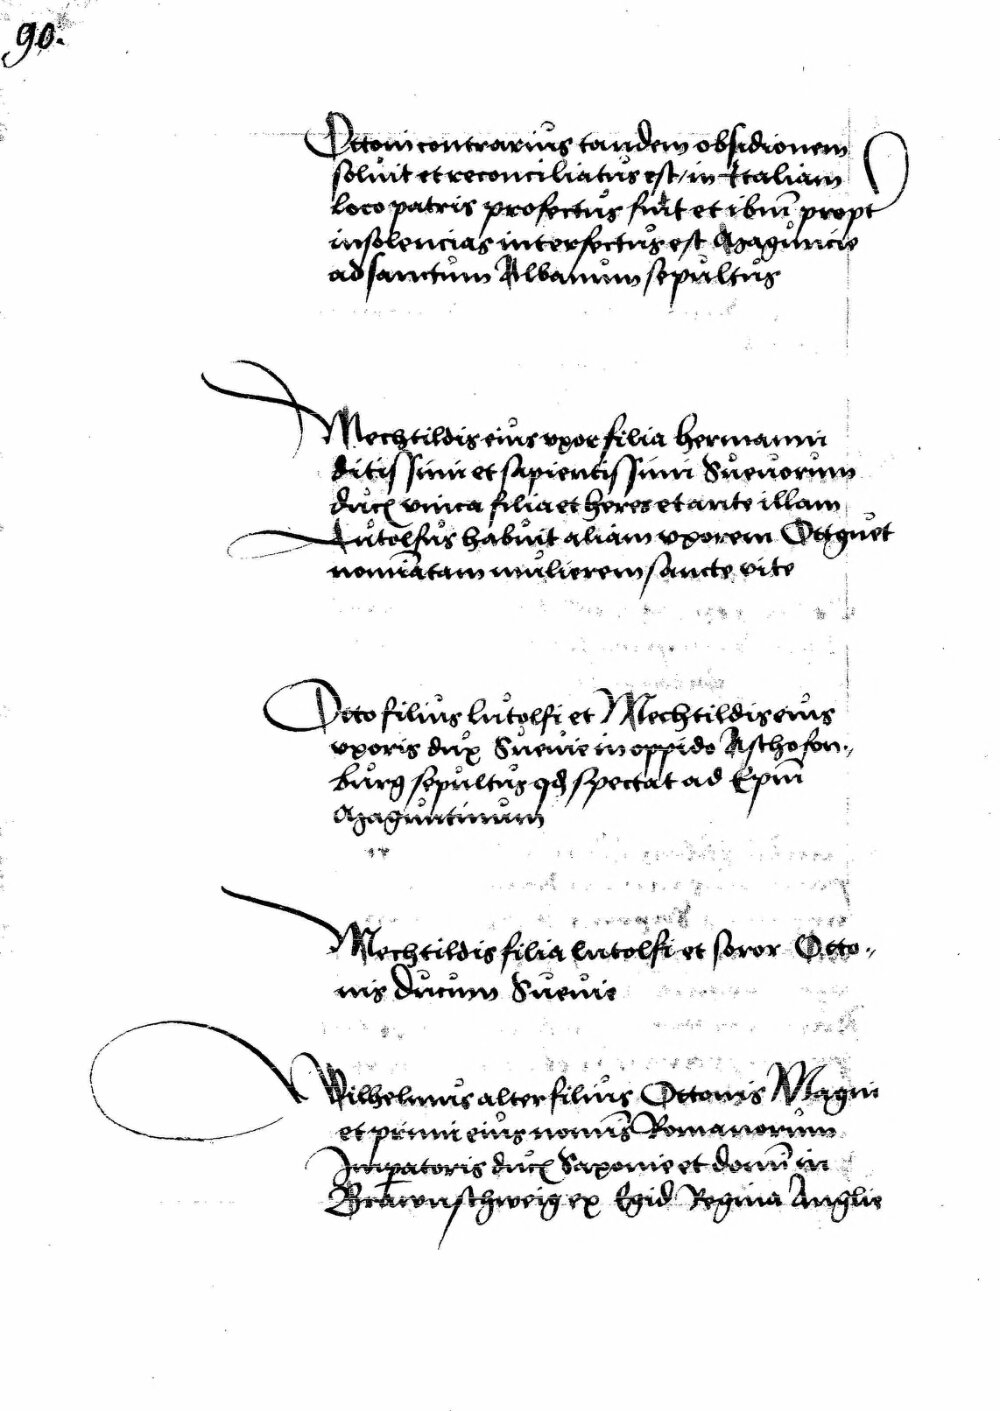 90.
Ottoni contrarius tandem obsidionem
soluit et reconciliatus est / in Italiam
loco patris profectus fuit et ibm̄ propt
insolencias interfectus est Maguncie
ad sanctum Albanum sepultus
Mechtildis eius vxor filia hermanni
ditissimi et sapientissimi Sueuorum
ducꝭ vnica filia et heres et ante illam
Lutolfus habuit aliam vxorem
nomīatam mulierem sancte vite
Otto filius lutolfi et Mechtildis eius
vxoris dux Sueuie in oppido Aschofon„
burg sepultus qd spectat ad Epm̄
Maguntinum
Mechtildis filia lutolfi et soror Otto„
nis Ducum Sueuie
Wilhelmus alter filius Ottonis Magni
et primi eius nomīs Romanorum
Imꝑatoris ducꝭ Saxonie et domī in
Brawnschweig ex Egid Regina Anglie